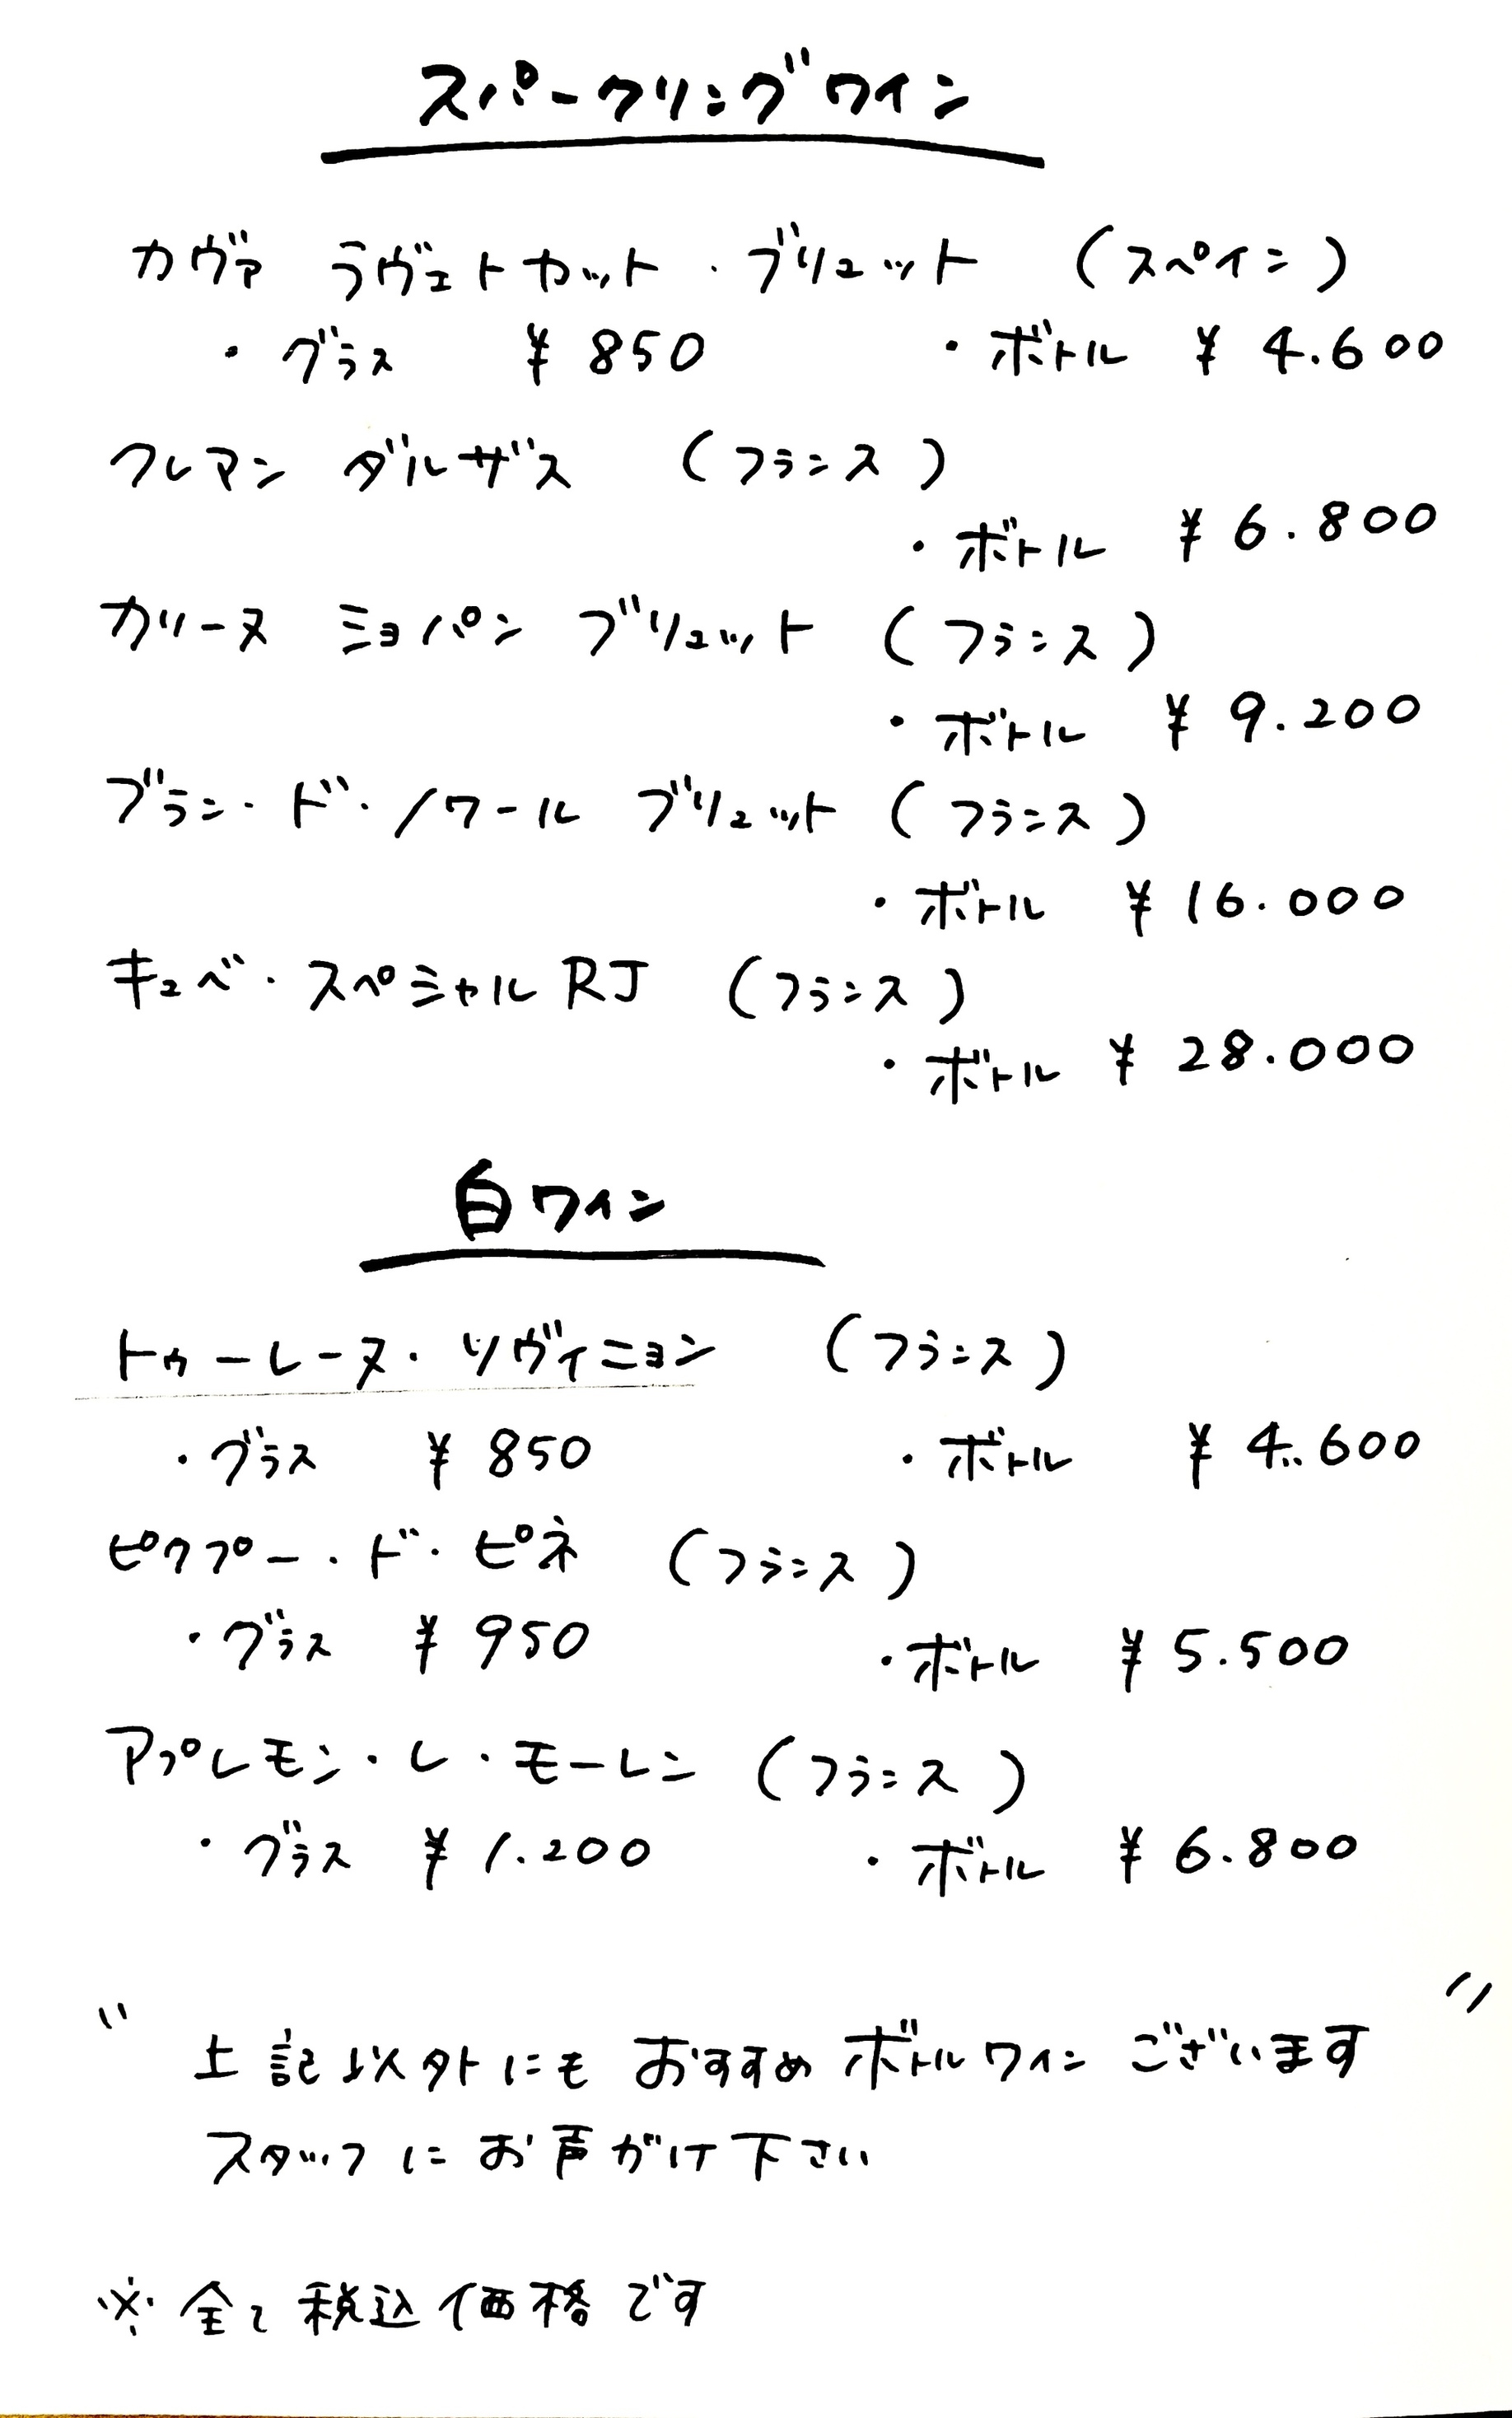 スパークリングワイン
カヴァ ラヴェトカット・ブリュット (スペイン)
・グラス ¥850 ・ボトル ¥4.600
クレマン ダルザス (フランス)
・ボトル ¥6.800
カリーヌ ショパン ブリュット (フランス)
・ボトル ¥9.200
ブラン・ド・ノワール ブリュット (フランス)
・ボトル ¥16.000
キュベ・スペシャルRJ (フランス)
・ボトル ¥28.000
白ワイン
トゥーレーヌ・ソヴィニョン (フランス)
・グラス ¥850 ・ボトル ¥4.600
ピクプー・ド・ピネ (フランス)
・グラス ¥950 ・ボトル ¥5.500
アプレモン・レ・モーレン (フランス)
・グラス ¥1.200 ・ボトル ¥6.800
"上記以外にもおすすめボトルワインございます"
スタッフにお声がけ下さい
※全て税込価格です